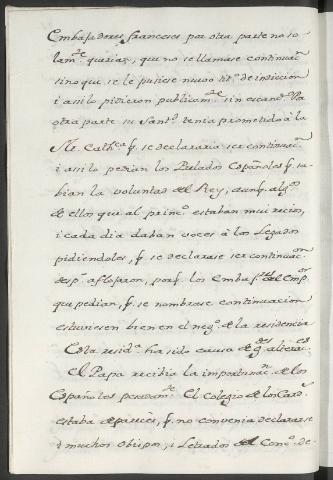 Embajadores franceses por otra parte no so-
lam.te querian, que no se llamase continuac.n
sino que se le pusiese nuevo tit.o de indiccion
i assi lo pidieron publicam.te
otra parte su Sant.d tenia prometido à la
M. Cath.ca q. se declararia ser continuac.n
i assi lo pedian los Prelados Españoles q. sa-
bian la voluntad del Rey, aunq. alg.s
de ellos que al princ.o estaban mui recios,
i cada dia daban voces à los Legados
pidiendoles, q. se declarase ser continuac.on
desp.s afloxaron, porq. los Embax.res del Emp.or
que pedian, q. se nombrase continuacion
estuviesen bien en el neg.o de la residencia
Esta resid.a ha sido causa de g.des alterac.es
El Papa recibia la importun.n de los
Españoles pesadam.te El Colegio de los Card.s
estaba de parecèr, q. no convenia declararse
i muchos obispos, i Letrados del Conc.o de-